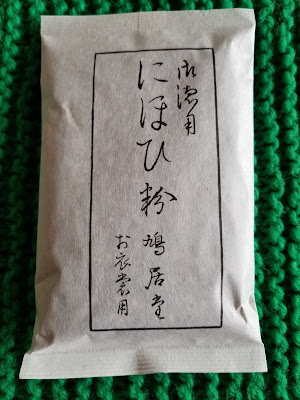 御徳用
にほひ粉
鳩居堂
お衣裳用